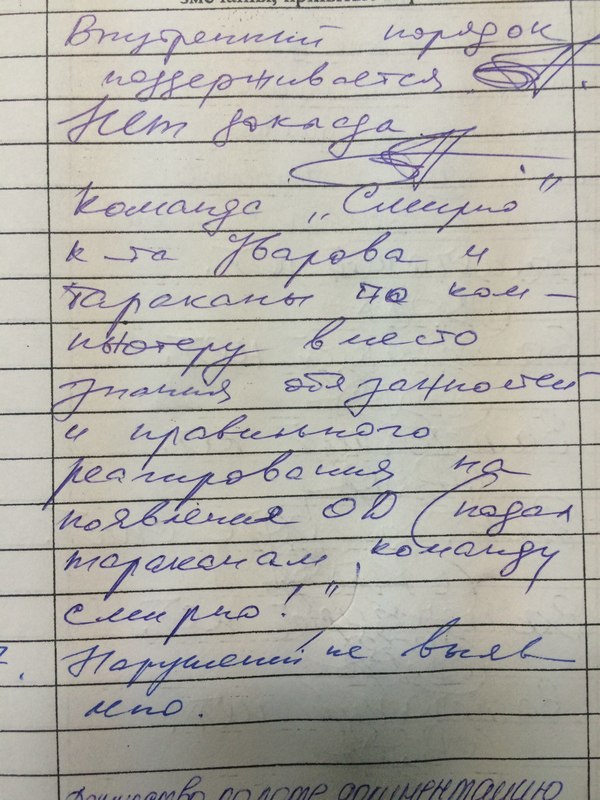 Внутренний порядок
поддерживается
Нет доклада
Команда „Смирно"
к-та Уварова и
тараканы по ком-
пьютеру вместо
знания обязанностей
и правильного
реагирования на
появления ОД (подал
тараканам команду
смирно!",
Нарушений не выяв
лено.